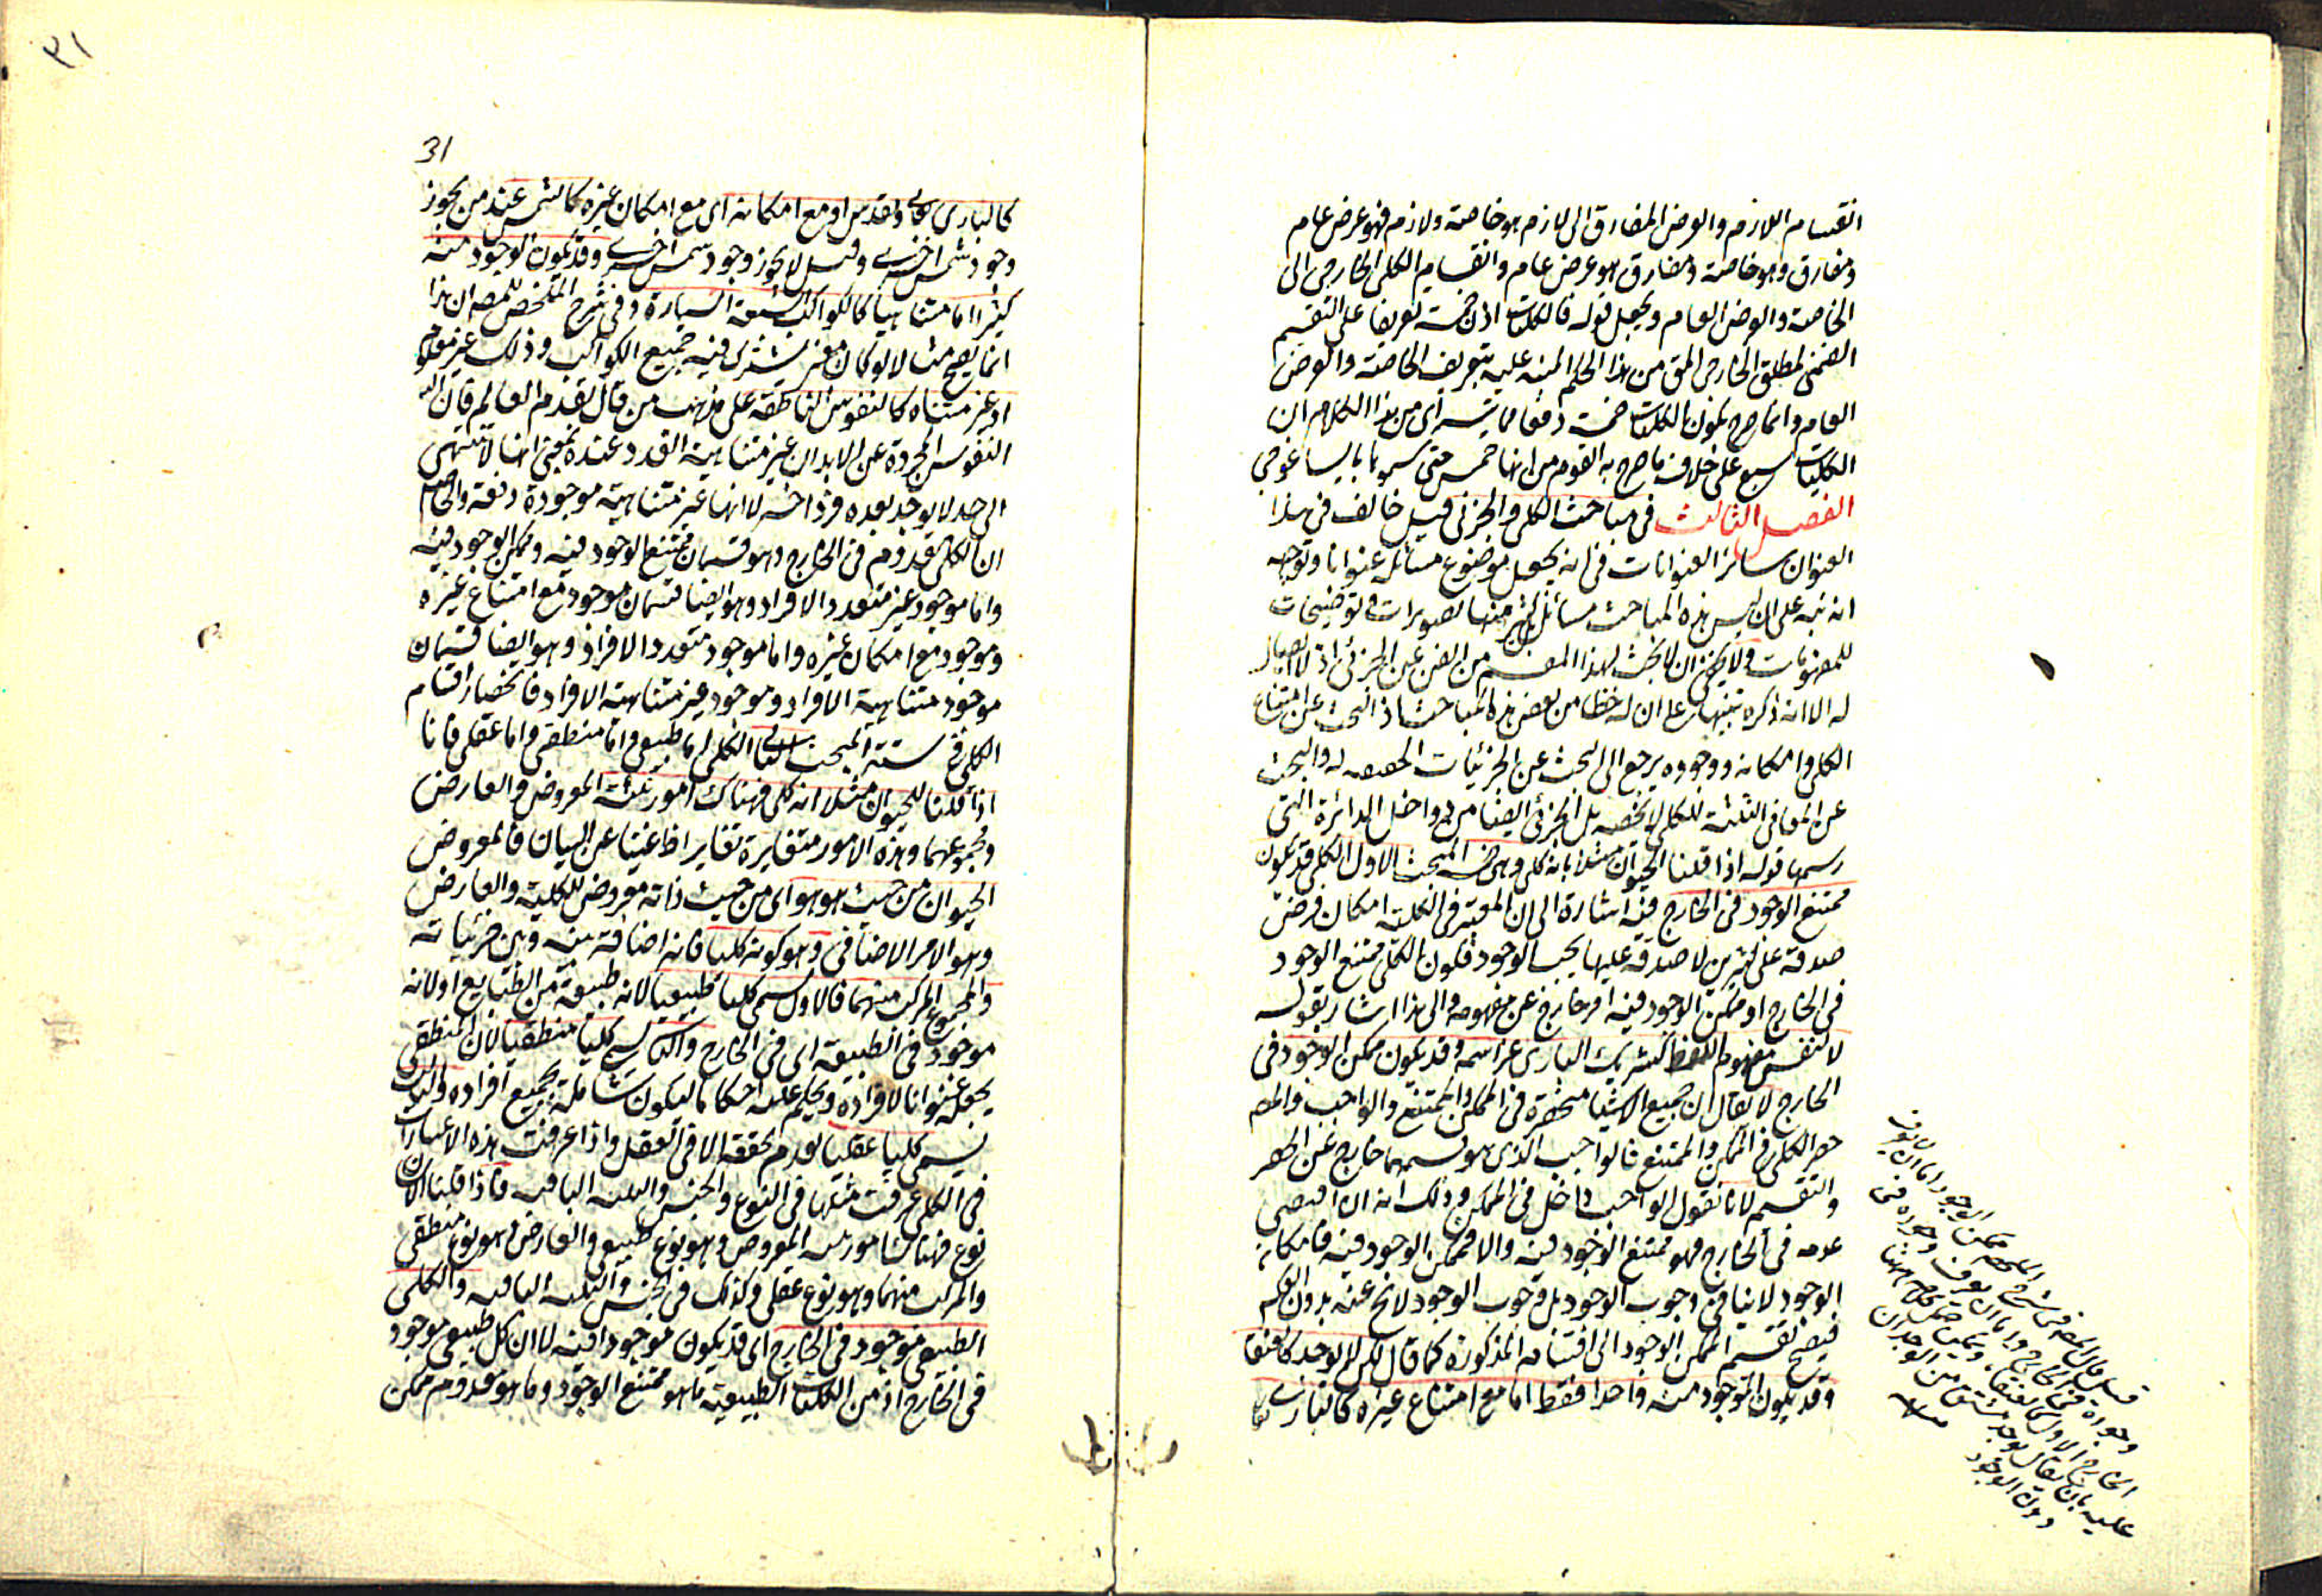 انقسام اللازم والعرض المفارق الى لازم هو خاصة ولازم هو عرض عام
ومفارق وهو خاصة ومفارق هو عرض عام وانقسام الكلى الخارجى الى
الخاصة والعرض العام ويجعل قوله فالكليات اذن خمسة تفريعا على التقسيم
الضمنى لمطلق الخارجى المق من هذا الحكم المنبه عليه بتعريف الخاصة والعرض
العام وانما صرح بكون الكليات خمسة دفعا لما يتراى من هذا الكلام ان
الكليات سبع على خلاف ما صرح به القوم من انها خمس حتى سموها بايساغوجى
الفصل الثالث فى مباحث الكلى والجزئى قيل خالف فى هذا
العنوان سائر العنوانات فى انه يجعل موضوع مسائله عنوانا وتوجيهه
انه نبه على ان ليس هذه المباحث مسائل بل اكثر منها تصويرات وتوضيحات
للمفهومات ولا يخفى ان لا بحث لهذا القسم من الفن عن الجزئى اذ لا ايصال
له الا انه ذكره تنبيها على ان له حظا من بعض هذه المباحث اذ البحث عن امتناع
الكلى وامكانه ووجوده يرجع الى البحث عن الجزئيات الحقيقية له والبحث
عن المعانى الثلثة للكلى لا يخصه بل الجزئى ايضا من دواخل الدائرة التى
رسمها قوله اذا قلنا الحيوان مثلا بانه كلى وهى خمسة المبحث الاول الكلى قد يكون
ممتنع الوجود فى الخارج فيه اشارة الى ان المعتبر فى الكلية امكان فرض
صدقه على كثيرين لا صدقه عليها بحسب الوجود فكون الكلى ممتنع الوجود
فى الخارج او ممكن الوجود فيه امر خارج عن مفهومه والى هذا اشار بقوله
لا لنفس مفهوم اللفظ كشريك البارى عز اسمه وقد يكون ممكن الوجود فى
الخارج لا يقال ان جميع الاشياء منحصرة فى الممكن والممتنع والواجب والمصـ
حصر الكلى فى الممكن والممتنع فالواجب الذى هو قسيمهما خارج عن الحصر
والتقسيم لانا نقول الواجب داخل فى الممكن وذلك انه ان اقتضى
عدمه فى الخارج فهو ممتنع الوجود فيه والا فممكن الوجود فيه فامكانه
الوجود لا ينافى وجوب الوجود بل وجوب الوجود لا نخ عنه بدون العكس
فيصح تقسيم الممكن الوجود الى اقسامه المذكورة كما قال لكن لم يوجد كالعنقا
وقد يكون الموجود منه واحدا فقط اما مع امتناع غيره كالبارى تعا
قيل قال المصـ فى شرح الملخص ممكن الوجود اما ان لا يعرف
وجوده فى الخارج واما ان يعرف وجوده فى
الخارج الاول كالعنقاء ويمكن حمل كلامه ههنا
عليه بان يقال يوجد مشتق من الوجدان
دون الوجود
٣١
31
كالبارى تعالى وتقدس او مع امكانه اى مع امكان غيره كالشمس عند من يجوز
وجود شمس اخرى وقيل لا يجوز وجود شمس اخرى وقد يكون الموجود منه
كثيرا اما متناهيا كالكواكب السبعة السيارة وفى شرح الملخص للمصـ ان هذا
انما يصح مثالا لو كان معنى يشترك فيه جميع الكواكب وذلك غير معلوم
او غير متناه كالنفوس الناطقة على مذهب من قال بقدم العالم فان
النفوس المجردة عن الابدان غير متناهية العدد عنده بمعنى انها لا تنتهى
الى حد لا يوجد بعده فرد اخر لا انها غير متناهية موجودة دفعة والحاصل
ان الكلى معدوم فى الخارج وهو قسمان ممتنع الوجود فيه وممكن الوجود فيه
واما موجود غير متعدد الافراد وهو ايضا قسمان موجود مع امتناع غيره
وموجود مع امكان غيره واما موجود متعدد الافراد وهو ايضا قسمان
موجود متناهية الافراد وموجود غير متناهية الافراد فانحصار اقسام
الكلى فى ستة المبحث الثانى الكلى اما طبيعى واما منطقى واما عقلى فانا
اذا قلنا للحيوان مثلا انه كلى فهناك امور ثلثة المعروض والعارض
ومجموعهما وهذه الامور متغايرة تغايرا غنيا عن البيان فالمعروض
الحيوان من حيث هو هو اى من حيث ذاته معروض للكلية والعارض
وهو الامر الاضافى وهو كونه كليا فانه اضافة بينه وبين جزئياته
والمجموع المركب منهما فالاول يسمى كليا طبيعيا لانه طبيعة من الطبايع او لانه
موجود فى الطبيعة اى فى الخارج والثانى كليا منطقيا لان المنطقى
يجعله عنوانا لافراده ويحكم عليه احكاما ليكون شاملة لجميع افراده والثالث
يسمى كليا عقليا لعدم تحققه الا فى العقل واذا عرفت هذه الاعتبارات
فى الكلى عرفت مثلها فى النوع والجنس والثلثة الباقية فاذا قلنا الانسان
نوع فهناك امور ثلثة المعروض وهو نوع طبيعى والعارض وهو نوع منطقى
والمركب منهما وهو نوع عقلى وكذلك فى الجنس والثلثة الباقية والكلى
الطبيعى موجود فى الخارج اى قد يكون موجودا فيه لا ان كل طبيعى موجود
فى الخارج اذ من الكليات الطبيعية ما هو ممتنع الوجود وما هو معدوم ممكن